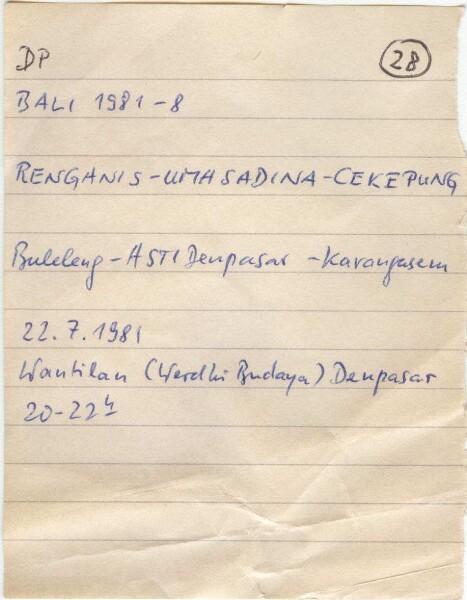 DP
28
BALI 1981-8
RENGANIS-UMA SADINA-CEKEPUNG
Buleleng - ASTI Denpasar - Karangasem
22.7.1981
Wantilan (Werdhi Budaya) Denpasar
20-22h